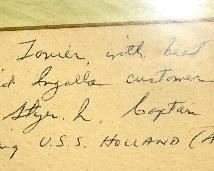 Tower, with best
Ingalls customer
Styer. h. Captain
ing U.S.S. HOLLAND (A